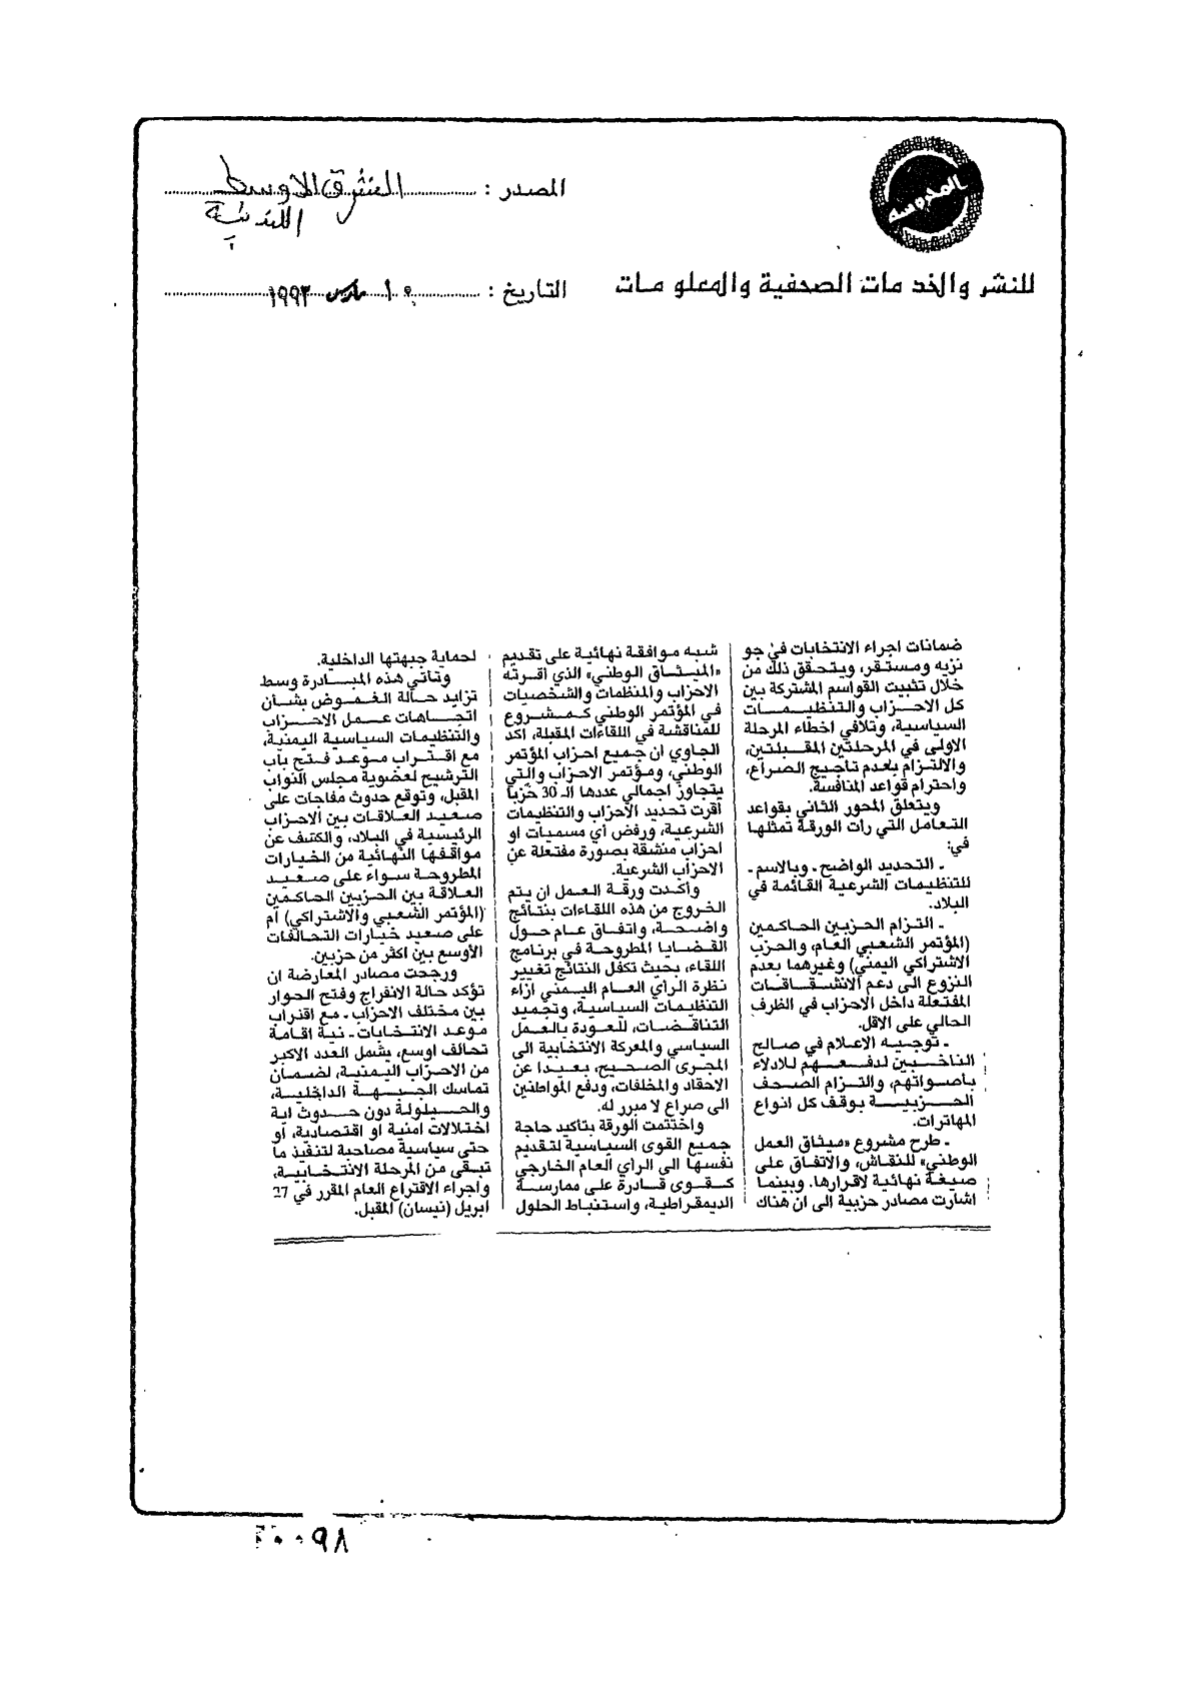 المحروسة
المصدر : الشرق الاوسط
اللندنية
للنشر والخدمات الصحفية والمعلومات
التاريخ : ١٠ مارس ١٩٩٣
ضمانات اجراء الانتخابات في جو
نزيه ومستقر، ويتحقق ذلك من
خلال تثبيت القواسم المشتركة بين
كل الاحزاب والتنظيمات
السياسية، وتلافي اخطاء المرحلة
الاولى في المرحلتين المقبلتين،
والالتزام بعدم تاجيج الصراع،
واحترام قواعد المنافسة.
ويتعلق المحور الثاني بقواعد
التعامل التي رات الورقة تمثلها
في:
ـ التحديد الواضح ـ وبالاسم ـ
للتنظيمات الشرعية القائمة في
البلاد.
ـ التزام الحزبين الحاكمين
(المؤتمر الشعبي العام، والحزب
الاشتراكي اليمني) وغيرهما بعدم
النزوع الى دعم الانشقاقات
المفتعلة داخل الاحزاب في الظرف
الحالي على الاقل.
ـ توجيه الاعلام في صالح
الناخبين لدفعهم للادلاء
باصواتهم، والتزام الصحف
الحزبية بوقف كل انواع
المهاترات.
ـ طرح مشروع «ميثاق العمل
الوطني» للنقاش، والاتفاق على
صيغة نهائية لاقرارها. وبينما
اشارت مصادر حزبية الى ان هناك
شبه موافقة نهائية على تقديم
«الميثاق الوطني» الذي اقرته
الاحزاب والمنظمات والشخصيات
في المؤتمر الوطني كمشروع
للمناقشة في اللقاءات المقبلة، اكد
الجاوي ان جميع احزاب المؤتمر
الوطني، ومؤتمر الاحزاب والتي
يتجاوز اجمالي عددها الـ 30 حزبا
أقرت تحديد الأحزاب والتنظيمات
الشرعية، ورفض أي مسميات او
احزاب منشقة بصورة مفتعلة عن
الاحزاب الشرعية.
وأكدت ورقة العمل ان يتم
الخروج من هذه اللقاءات بنتائج
واضحة، واتفاق عام حول
القضايا المطروحة في برنامج
اللقاء، بحيث تكفل النتائج تغيير
نظرة الرأي العام اليمني ازاء
التنظيمات السياسية، وتجميد
التناقضات، للعودة بالعمل
السياسي والمعركة الانتخابية الى
المجرى الصحيح، بعيدا عن
الاحقاد والمخلفات، ودفع المواطنين
الى صراع لا مبرر له.
واختتمت الورقة بتاكيد حاجة
جميع القوى السياسية لتقديم
نفسها الى الرأي العام الخارجي
كقوى قادرة على ممارسة
الديمقراطية، واستنباط الحلول
لحماية جبهتها الداخلية.
وتاتي هذه المبادرة وسط
تزايد حالة الغموض بشأن
اتجاهات عمل الاحزاب
والتنظيمات السياسية اليمنية،
مع اقتراب موعد فتح باب
الترشيح لعضوية مجلس النواب
المقبل، وتوقع حدوث مفاجات على
صعيد العلاقات بين الاحزاب
الرئيسية في البلاد، والكشف عن
مواقفها النهائية من الخيارات
المطروحة سواء على صعيد
العلاقة بين الحزبين الحاكمين
(المؤتمر الشعبي والاشتراكي) أم
على صعيد خيارات التحالفات
الأوسع بين اكثر من حزبين.
ورجحت مصادر المعارضة ان
تؤكد حالة الانفراج وفتح الحوار
بين مختلف الاحزاب ـ مع اقتراب
موعد الانتخابات ـ نية اقامة
تحالف اوسع، يشمل العدد الاكبر
من الاحزاب اليمنية، لضمان
تماسك الجبهة الداخلية،
والحيلولة دون حدوث اية
اختلالات امنية او اقتصادية، أو
حتى سياسية مصاحبة لتنفيذ ما
تبقى من المرحلة الانتخابية،
واجراء الاقتراع العام المقرر في 27
ابريل (نيسان) المقبل.